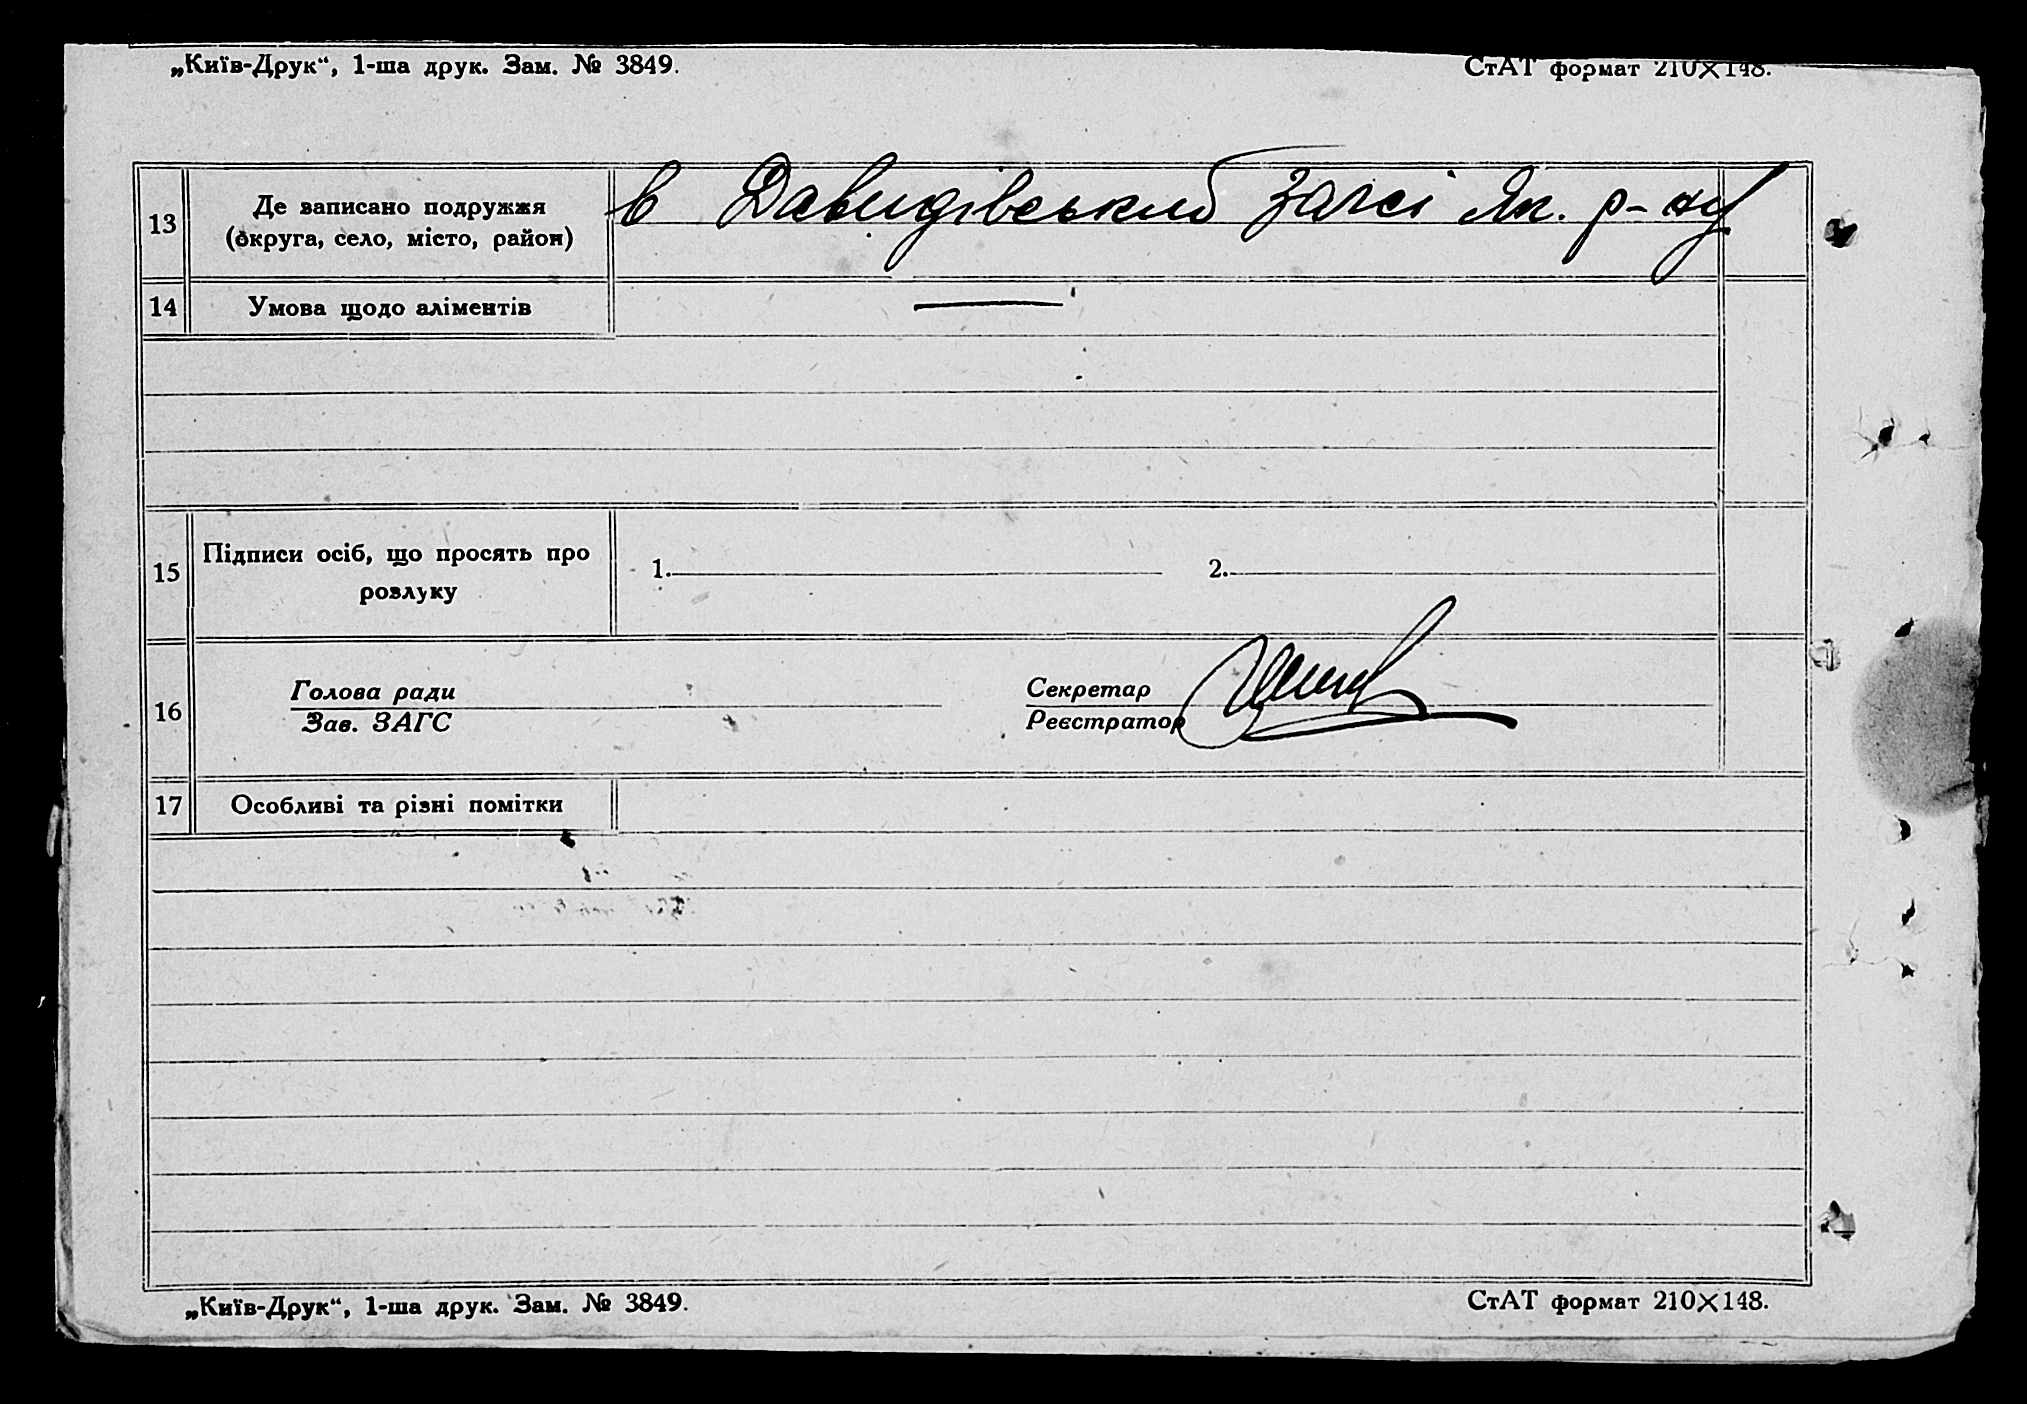 „Київ-Друк“, 1-ша друк. Зам. № 3849.
СтАТ формат 210×148.
13
Де записано подружжя
(округа, село, місто, район)
в Давидівський Загсі Як. р-ну
14
Умова щодо аліментів
—
15
Підписи осіб, що просять про
розлуку
1.
2.
16
Голова ради
Зав. ЗАГС
Секретар
Реєстратор
17
Особливі та різні помітки
„Київ-Друк“, 1-ша друк. Зам. № 3849.
СтАТ формат 210×148.